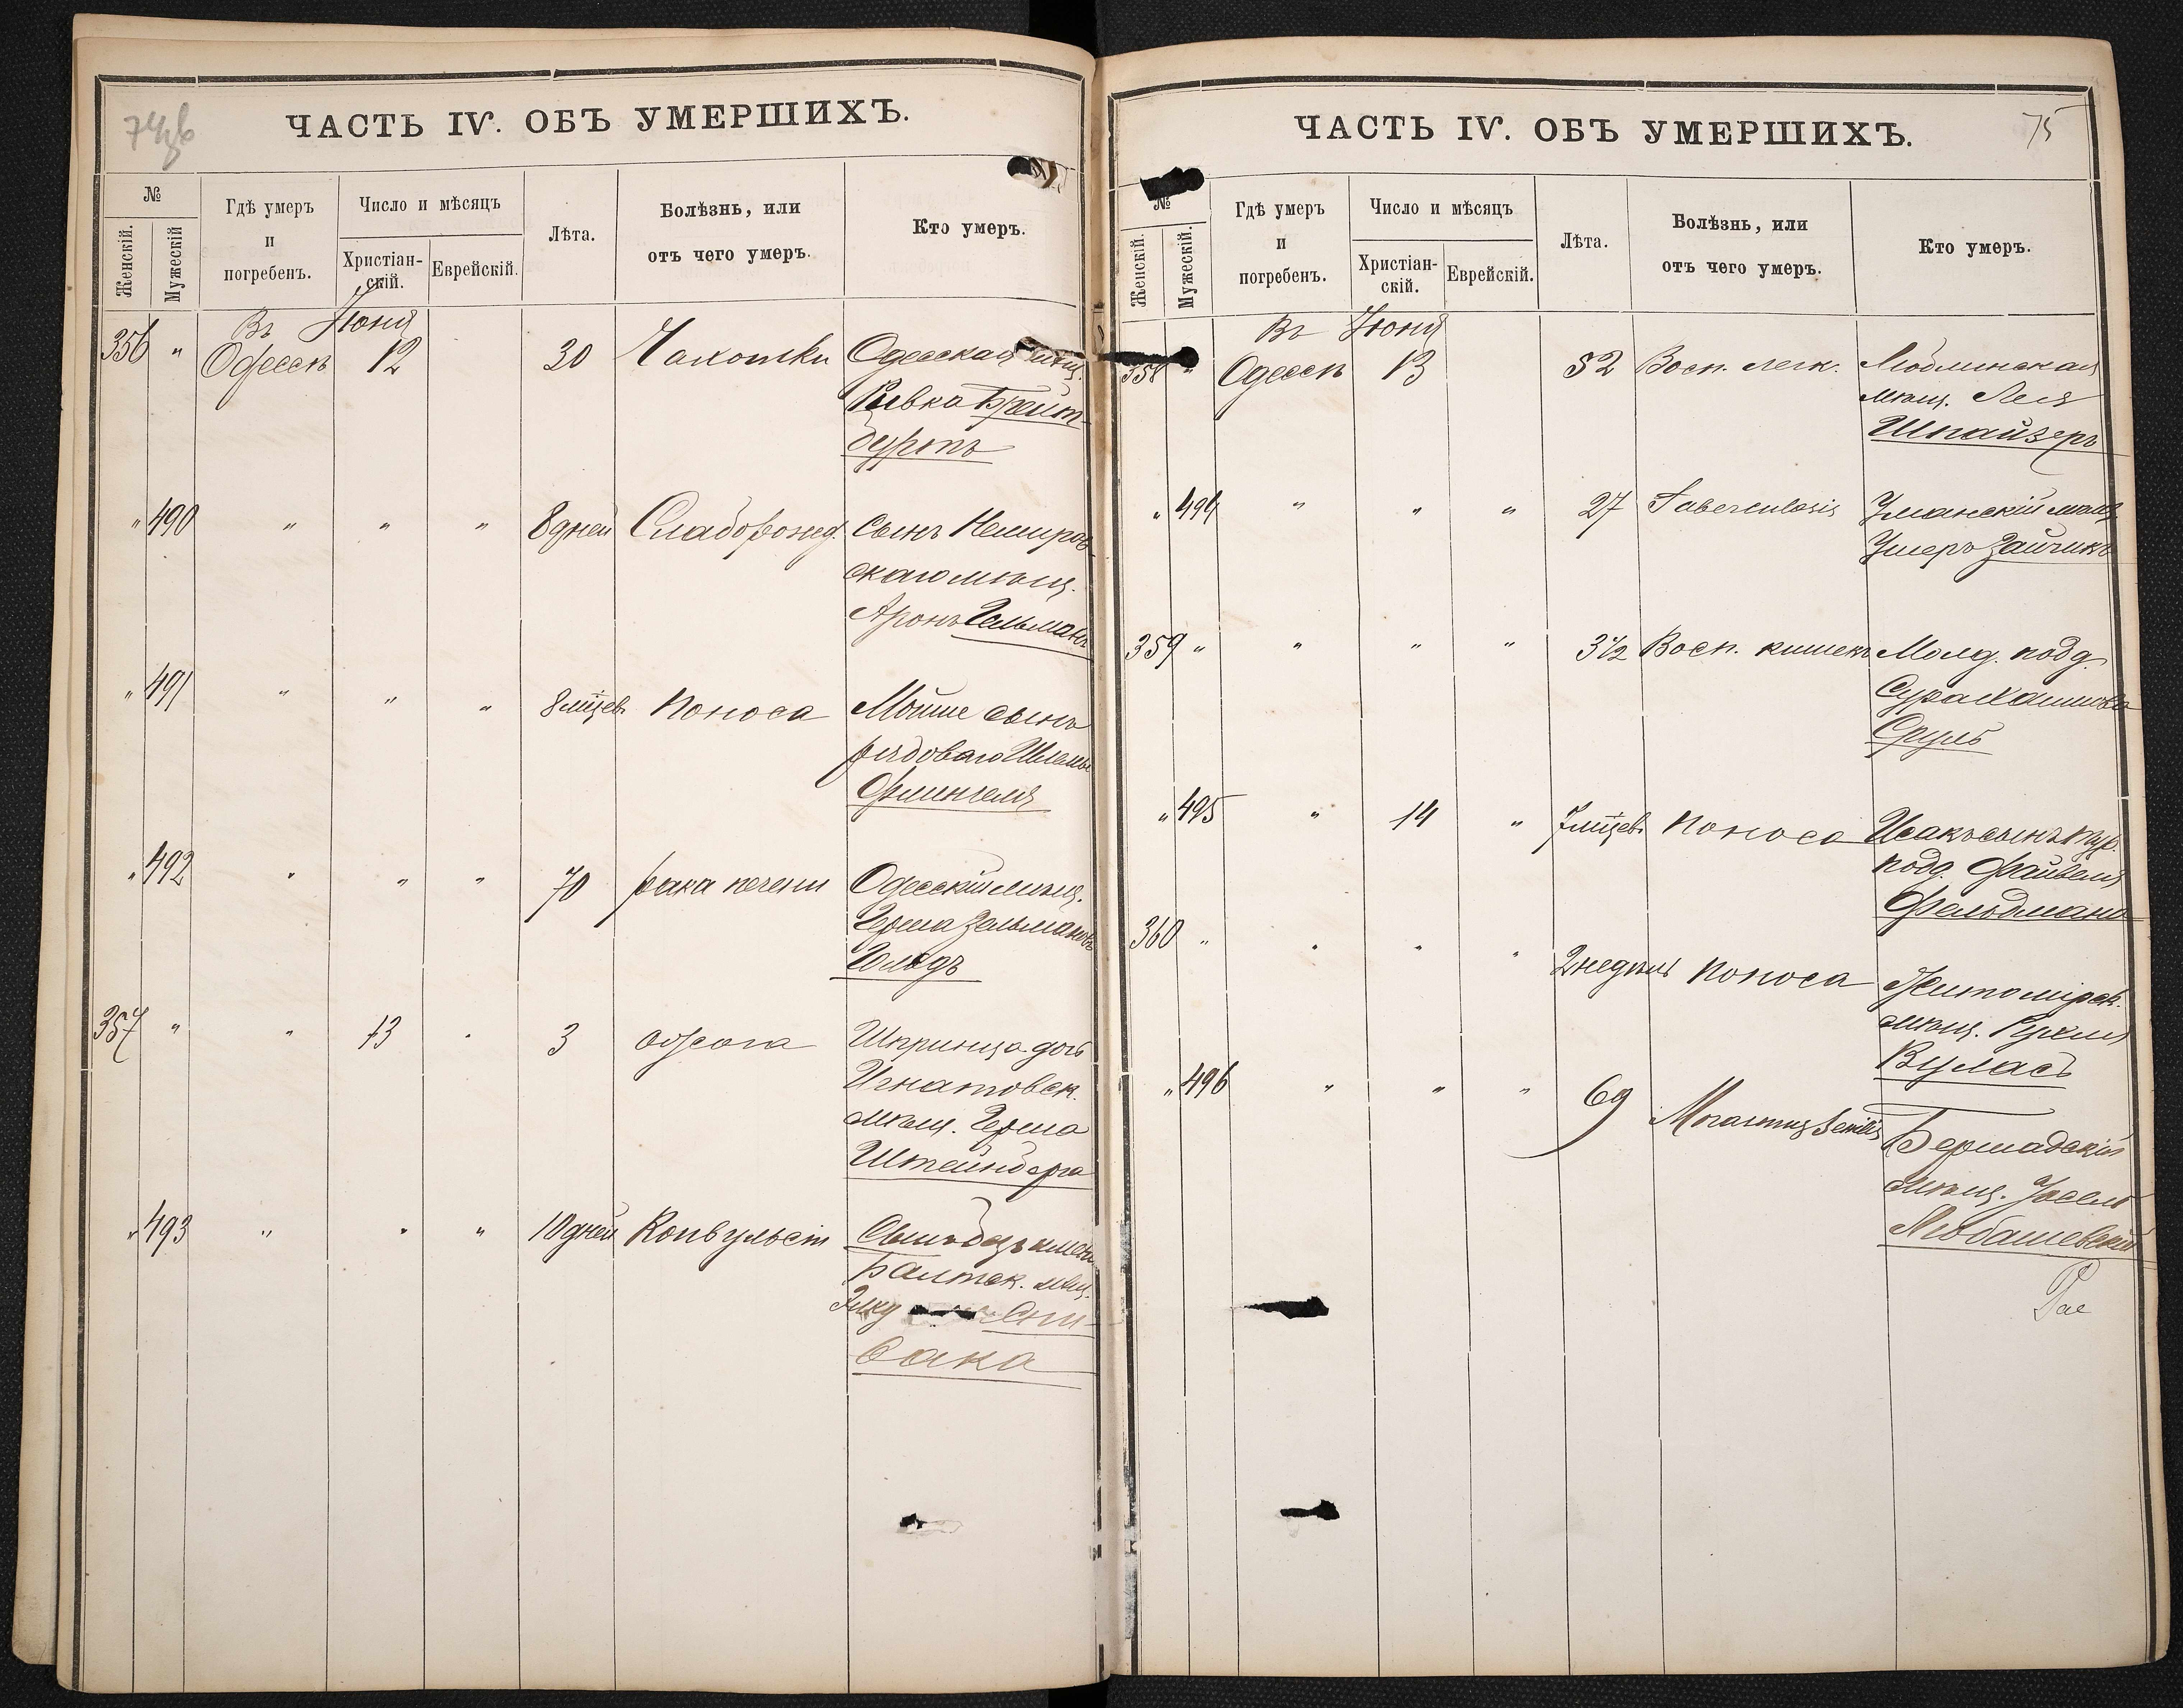 ЧАСТЬ IV. ОБЪ УМЕРШИХЪ.
№
Женскій.
Мужескій
Гдѣ умеръ
и
погребенъ.
Число и мѣсяцъ
Христіан-
скій.
Еврейскій.
Лѣта.
Болѣзнь, или
отъ чего умеръ.
Кто умеръ.
Въ Іюня
356 " Одессѣ 12 30 Чахотки Одесская мѣщ.
Ривка Брейт-
бургъ
" 490 " " " 8 дней Слаборожд. Сынъ Немиров-
скаго мѣщ.
Аронъ Гельманъ
" 491 " " " 8 мѣцев. Поноса Мойше сынъ
рядоваго Шлемы
Флингеля
" 492 " " " 70 рака печени Одесскій мѣщ.
Герша Зельмановъ
Гольдъ
357 " " 13 " 3 ожога Шпринца дочь
Игнатовск.
мѣщ. Герша
Штейнберга
" 493 " " " 10 дней Конвульсіи Сынъ безъ имени
Балтск. мѣщ.
Спи-
вака
ЧАСТЬ IV. ОБЪ УМЕРШИХЪ.
75
№
Женскій.
Мужескій.
Гдѣ умеръ
и
погребенъ.
Число и мѣсяцъ
Христіан-
скій.
Еврейскій.
Лѣта.
Болѣзнь, или
отъ чего умеръ.
Кто умеръ.
Въ Іюня
358 " Одессѣ 13 52 Восп. легк. Люблинская
мѣщ. Лея
Шпайзеръ
" 494 " " " 27 Tuberculosis Уманскій мѣщ.
Ушеръ Зайчикъ
359 " " " " 3 1/2 Восп. кишекъ Молд. подд.
Сура
Сруль
" 495 " 14 " 7 мѣцев. Поноса Исакъ сынъ тур.
подд. Файвеля
Фельдмана
360 " " " " 2 недѣль Поноса Житомірск.
мѣщ. Рухля
Вуласъ
" 496 " " " 69 Marasmus senilis Бершадскій
мѣщ. Іосель
Любашевскій